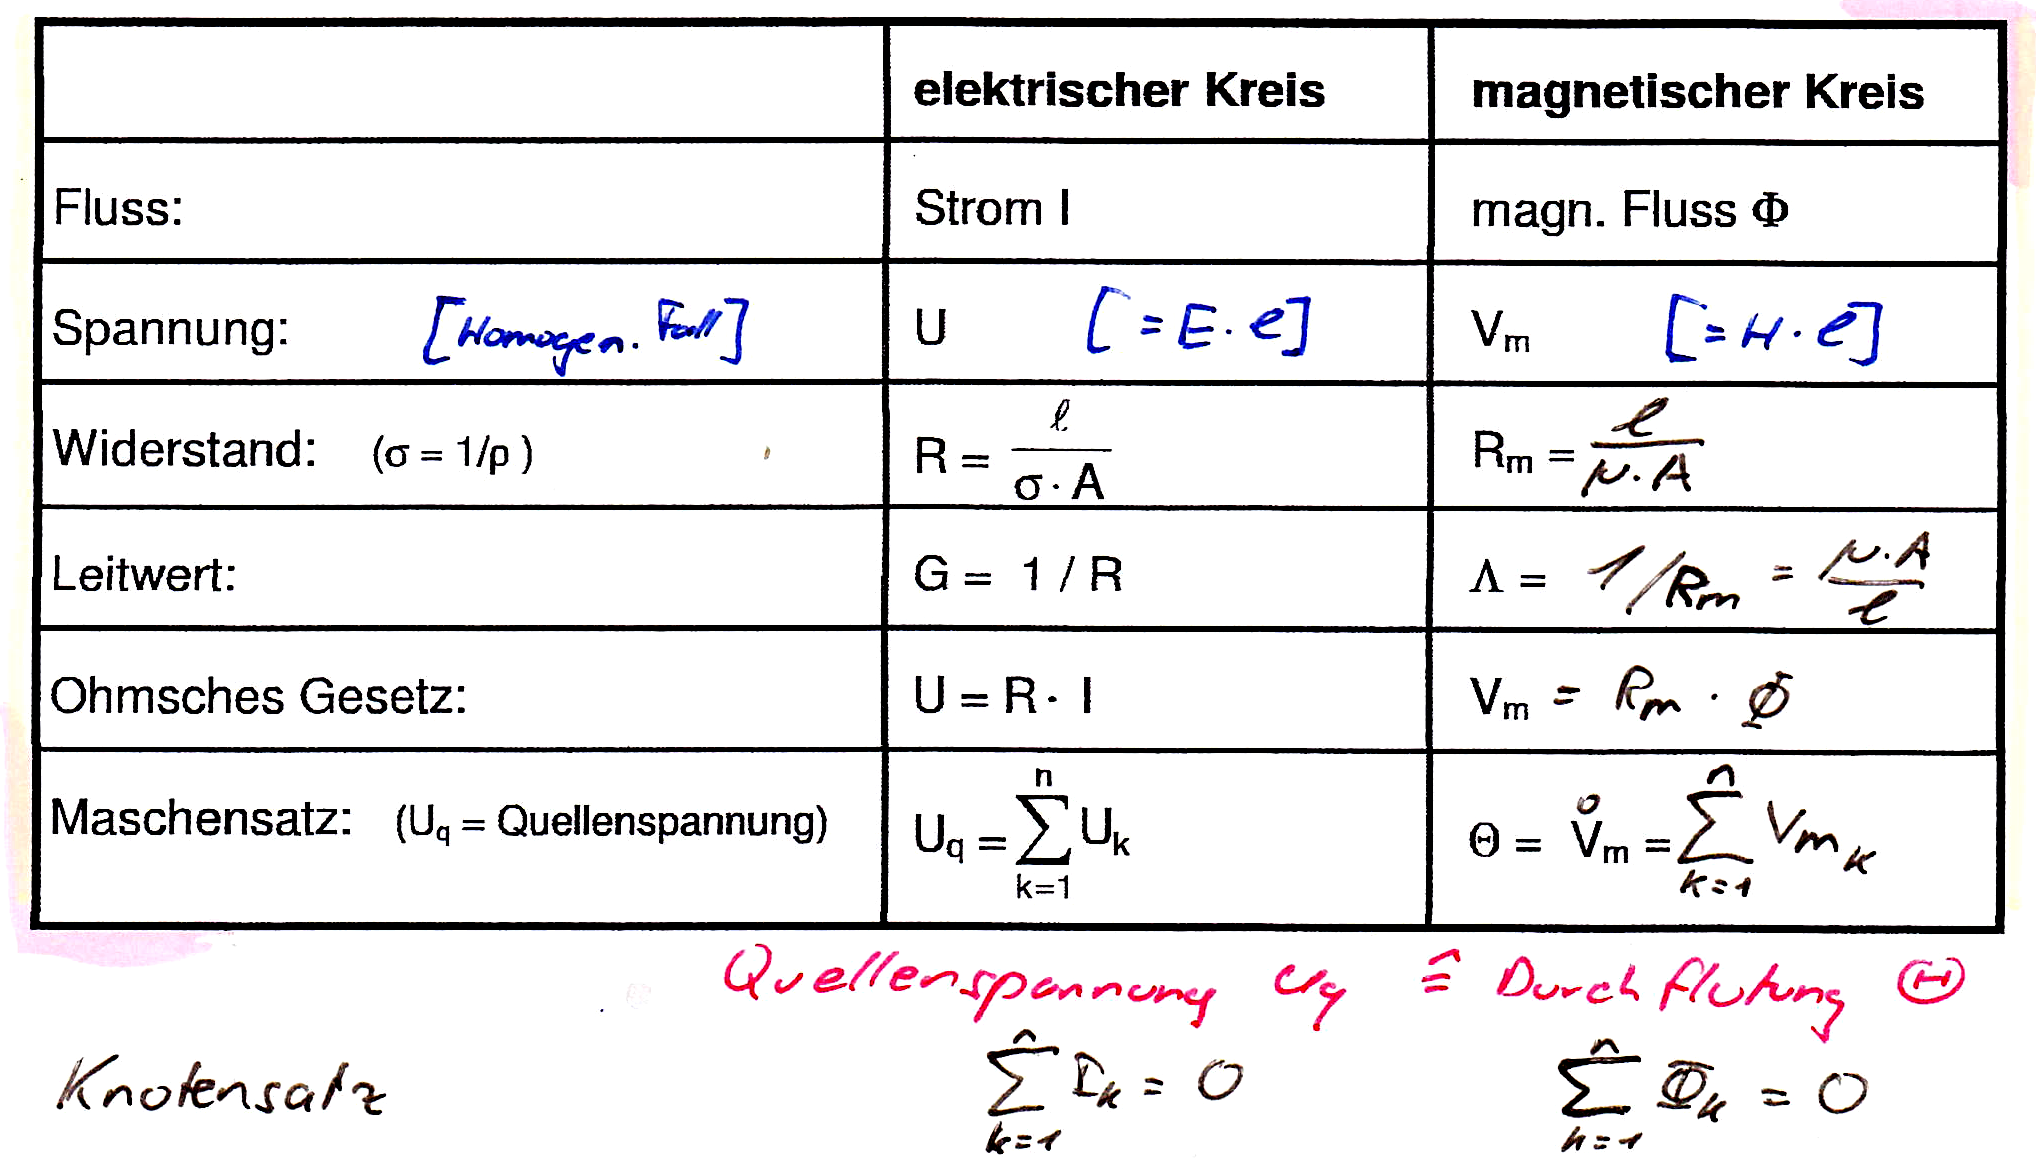 elektrischer Kreis magnetischer Kreis
Fluss: Strom I magn. Fluss Φ
Spannung: [Homogen. Fall] U [= E · ℓ] Vₘ [= H · ℓ]
Widerstand: (σ = 1/ρ) R = ℓ / (σ · A) Rₘ = ℓ / (μ · A)
Leitwert: G = 1 / R Λ = 1/Rₘ = (μ · A) / ℓ
Ohmsches Gesetz: U = R · I Vₘ = Rₘ · Φ
Maschensatz: (U_q = Quellenspannung) U_q = ∑_{k=1}^{n} U_k Θ = V̊ₘ = ∑_{k=1}^{n} V_{m_k}
Quellenspannung U_q ≙ Durchflutung Θ
Knotensatz ∑_{k=1}^{n} I_k = 0 ∑_{k=1}^{n} Φ_k = 0